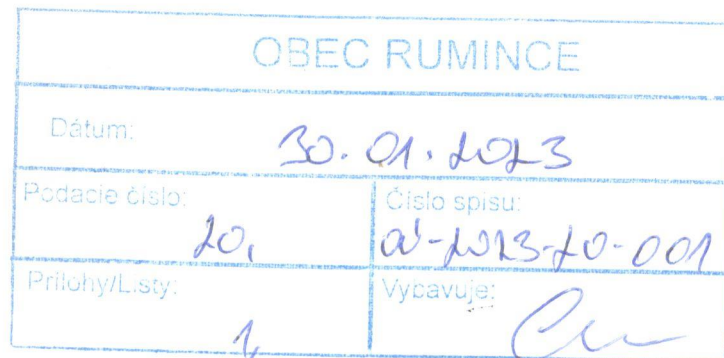 OBEC RUMINCE
Dátum:
30.01.2023
Podacie číslo:
20,
Číslo spisu:
Prílohy/Listy:
1,
Vybavuje: